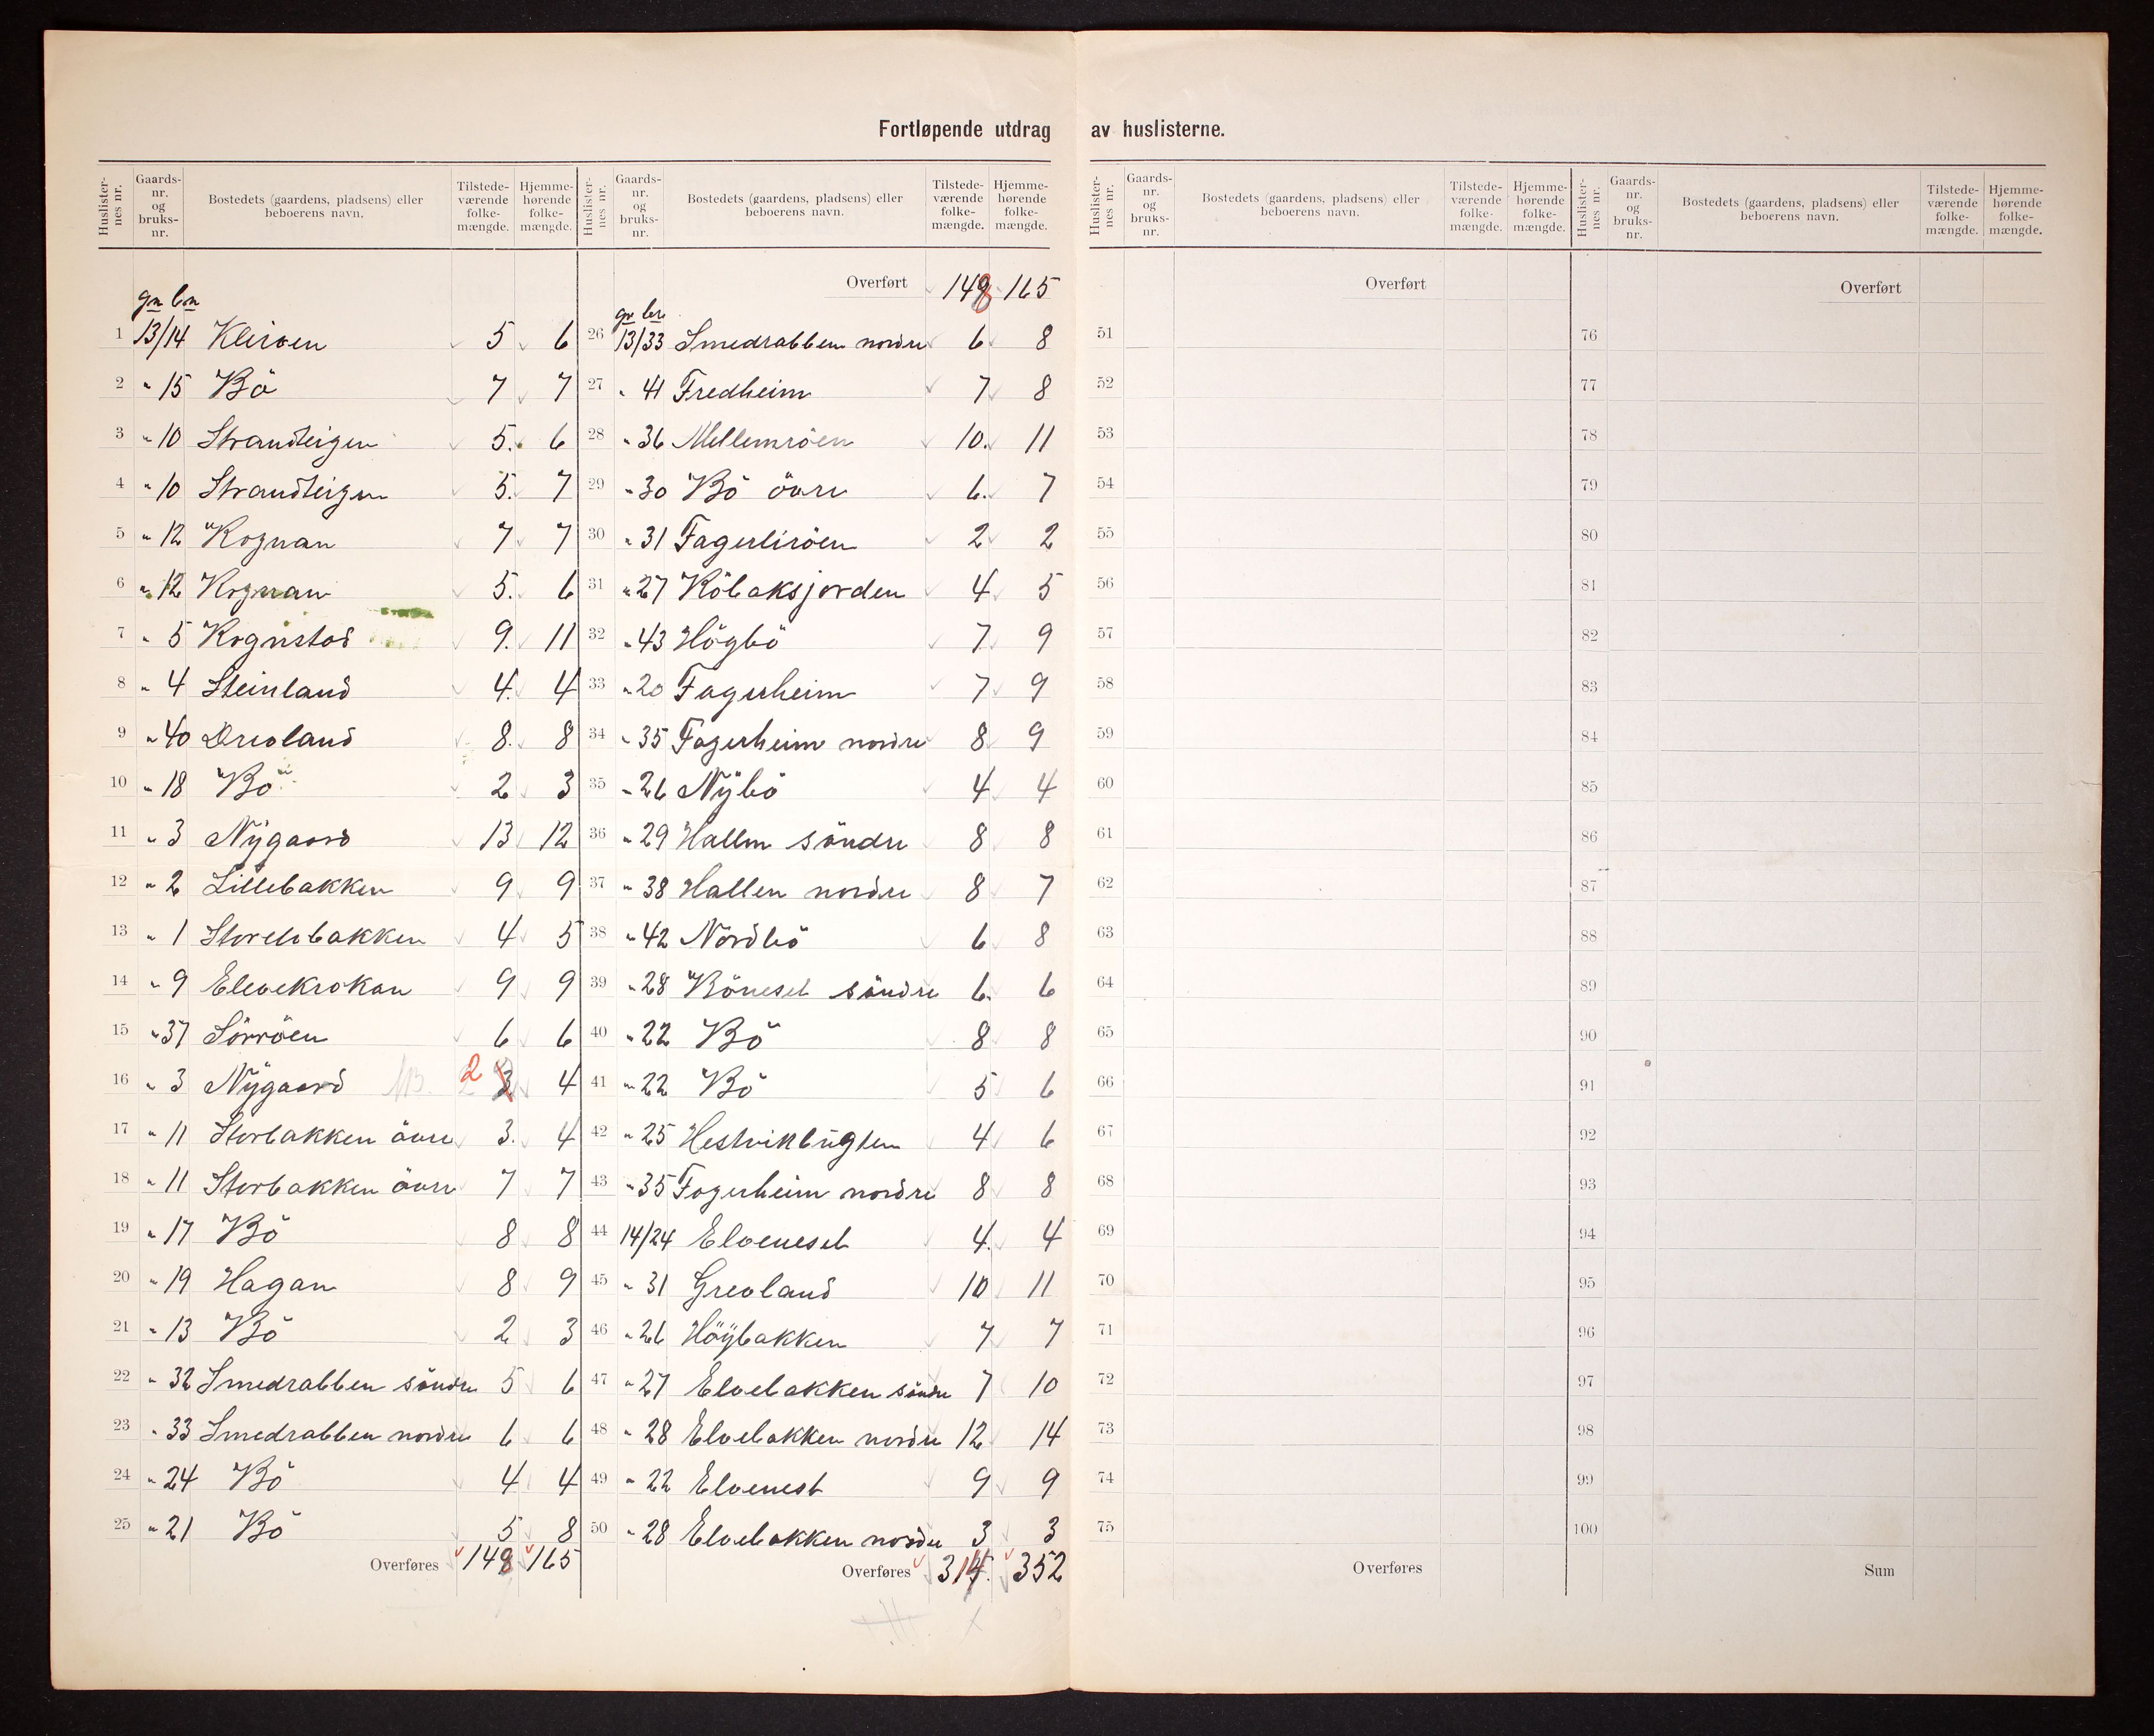 Fortløpende utdrag av huslisterne.
Huslister-nes nr. Gaards-nr. og bruks-nr. Bostedets (gaardens, pladsens) eller beboerens navn. Tilstede-værende folke-mængde. Hjemme-hørende folke-mængde.
gn bn
1 13/14 Kleiven 5 6
2 " 15 Bö 7 7
3 " 10 Strandteigen 5. 6
4 " 10 Strandteigen 5. 7
5 " 12 Rognan 7 7
6 " 12 Rognan 5. 6
7 " 5 Rognstad 9. 11
8 " 4 Steinland 4. 4
9 " 40 Drivland 8. 8
10 " 18 Bö 2 3
11 " 3 Nÿgaard 13 12
12 " 2 Lillebakken 9 9
13 " 1 Storelvbakken 4 5
14 " 9 Elvekrokan 9 9
15 " 37 Sörröen 6 6
16 " 3 Nÿgaard 2 3 4
17 " 11 Storbakken övre 3. 4
18 " 11 Storbakken övre 7 7
19 " 17 Bö 8 8
20 " 19 Hagan 8 9
21 " 13 Bö 2 3
22 " 32 Smedrabben söndre 5 6
23 " 33 Smedrabben nordre 6 6
24 " 24 Bö 4 4
25 " 21 Bö 5 8
Overføres 148 165
Huslister-nes nr. Gaards-nr. og bruks-nr. Bostedets (gaardens, pladsens) eller beboerens navn. Tilstede-værende folke-mængde. Hjemme-hørende folke-mængde.
Overført 148 165
gn bn
26 13/33 Smedrabben nordre 6 8
27 " 41 Fredheim 7 8
28 " 36 Mellemröen 10. 11
29 " 30 Bö övre 6. 7
30 " 31 Fagerliröen 2 2
31 " 27 Kobaksjorden 4 5
32 " 43 Högbö 7 9
33 " 20 Fagerheim 7 9
34 " 35 Fagerheim nordre 8 9
35 " 26 Nÿbö 4 4
36 " 29 Hallen söndre 8 8
37 " 38 Hallen nordre 8 7
38 " 42 Nordbö 6 8
39 " 28 Böneset söndre 6. 6
40 " 22 Bö 8 8
41 " 22 Bö 5 6
42 " 25 Hestvikbugten 4 6
43 " 35 Fagerheim nordre 8 8
44 14/24 Elveneset 4. 4
45 " 31 Greoland 10 11
46 " 26 Höÿbakken 7 7
47 " 27 Elvebakken söndre 7 10
48 " 28 Elvebakken nordre 12 14
49 " 22 Elvenest 9 9
50 " 28 Elvebakken nordre 3 3
Overføres 314. 352
Huslister-nes nr. Gaards-nr. og bruks-nr. Bostedets (gaardens, pladsens) eller beboerens navn. Tilstede-værende folke-mængde. Hjemme-hørende folke-mængde.
Overført
51
52
53
54
55
56
57
58
59
60
61
62
63
64
65
66
67
68
69
70
71
72
73
74
75
Overføres
Huslister-nes nr. Gaards-nr. og bruks-nr. Bostedets (gaardens, pladsens) eller beboerens navn. Tilstede-værende folke-mængde. Hjemme-hørende folke-mængde.
Overført
76
77
78
79
80
81
82
83
84
85
86
87
88
89
90
91
92
93
94
95
96
97
98
99
100
Sum